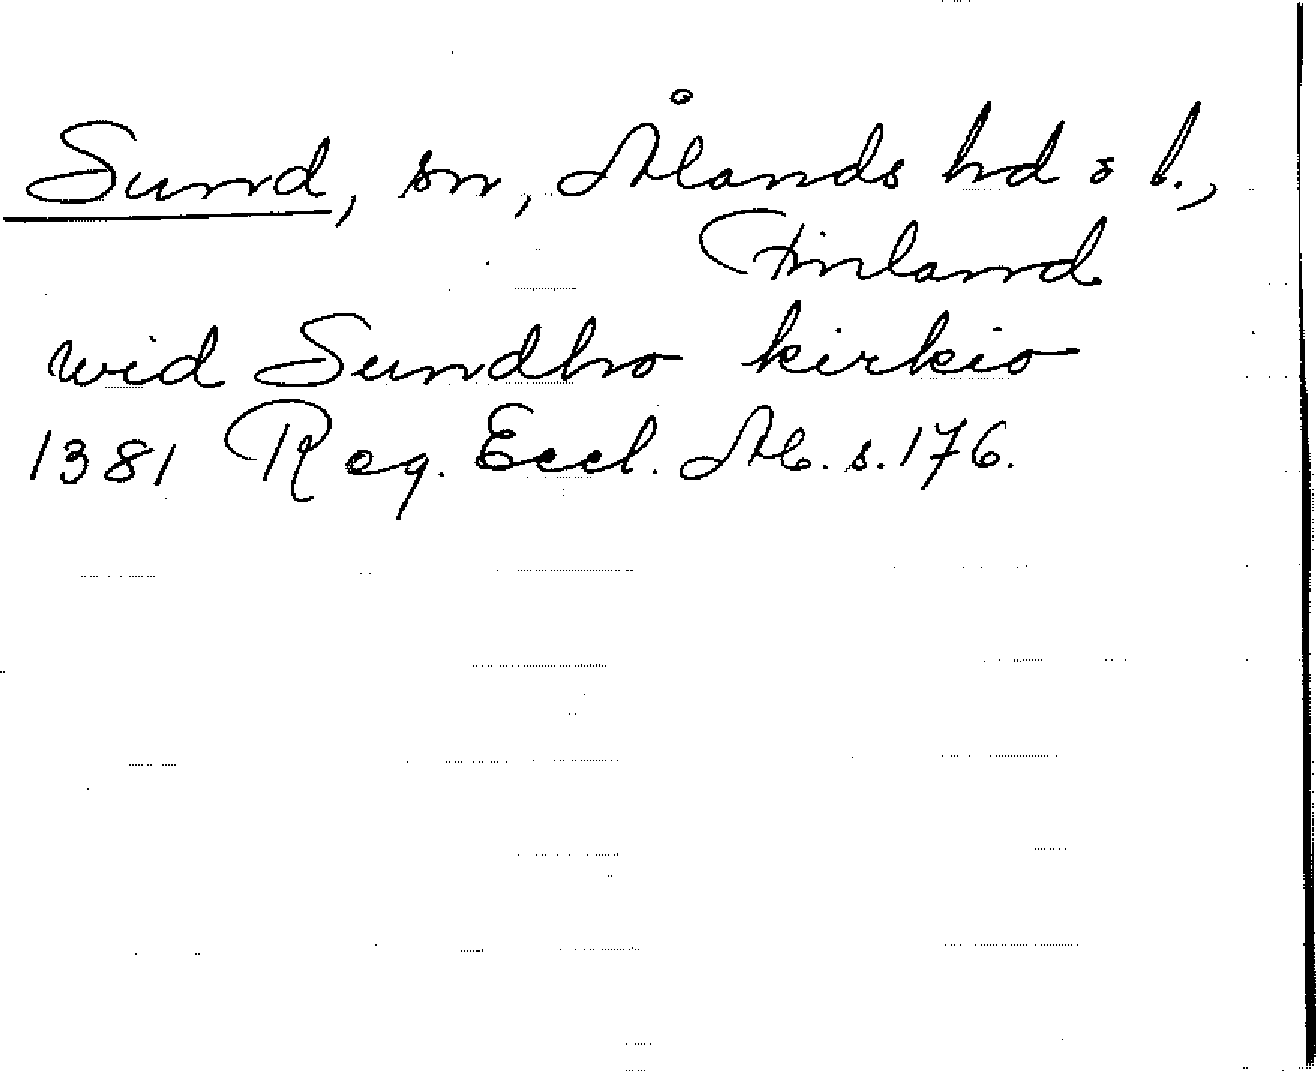 Sund, sn, Ålands hd o l.,
Finland
wid Sundho kirkio
1381 Reg. Eccl. Ab. s. 176.